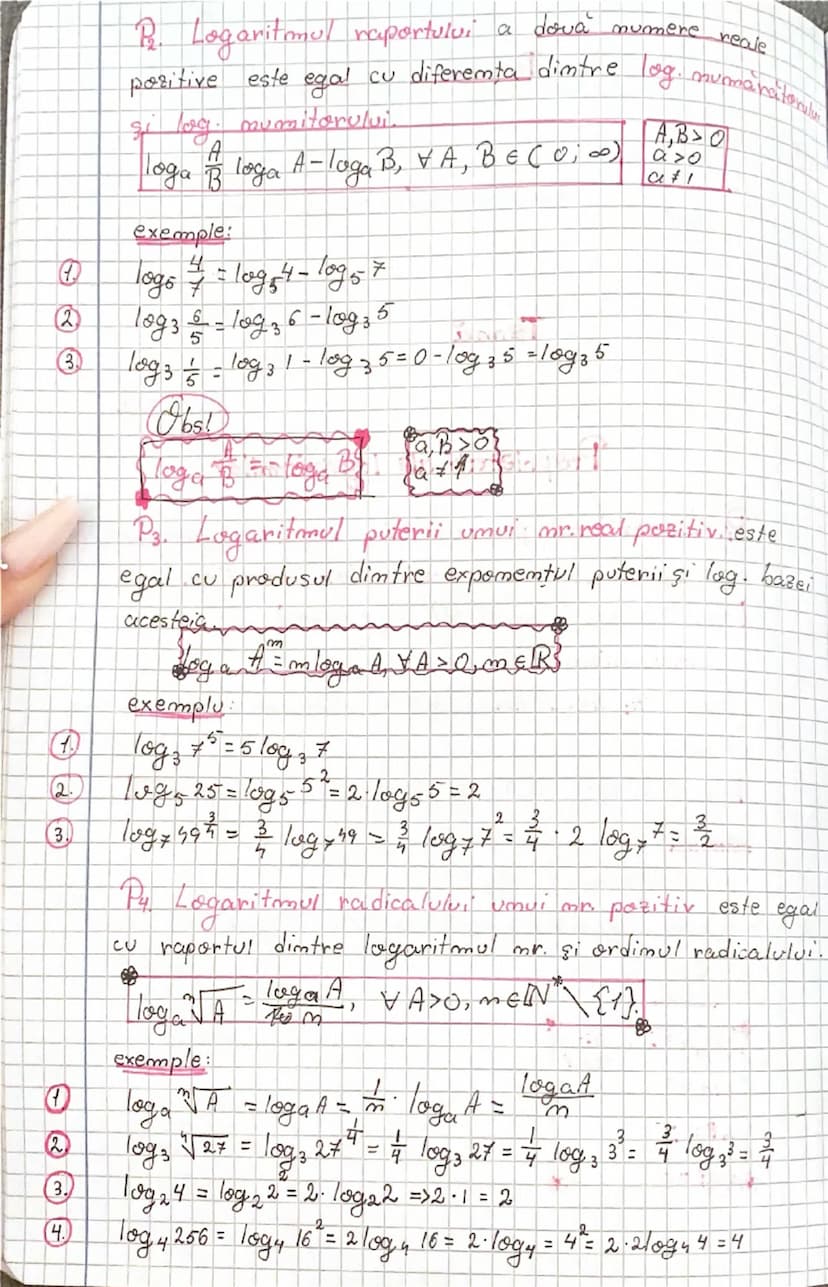 P2. Logaritmul raportului a două numere reale
pozitive este egal cu diferența dintre log. numărătorului
și log. numitorului.
logₐ A/B logₐ A – logₐ B, ∀ A, B ∈ (0; ∞)
A, B > 0
a > 0
a ≠ 1
exemple:
1. log₅ 4/7 = log₅ 4 – log₅ 7
2. log₃ 6/5 = log₃ 6 – log₃ 5
3. log₃ 1/5 = log₃ 1 – log₃ 5 = 0 – log₃ 5 = log₃ 5
Obs!
logₐ A/B = – logₐ B
a, B > 0
a ≠ 1
P3. Logaritmul puterii unui nr. real pozitiv. este
egal cu produsul dintre exponentul puterii și log. bazei
acesteia.
logₐ Aᵐ = m logₐ A, ∀ A > 0, m ∈ ℝ
exemplu:
1. log₃ 7⁵ = 5 log₃ 7
2. log₅ 25 = log₅ 5² = 2 · log₅ 5 = 2
3. log₇ 49^(3/4) = 3/4 log₇ 49 = 3/4 log₇ 7² = 3/4 · 2 log₇ 7 = 3/2
P4. Logaritmul radicalului unui nr. pozitiv este egal
cu raportul dintre logaritmul nr. și ordinul radicalului.
logₐ ⁿ√A = logₐ A / n, ∀ A > 0, n ∈ ℕ* \ {1}.
exemple:
1. logₐ ⁿ√A = logₐ A = 1/n · logₐ A = logₐ A / n
2. log₃ ⁴√27 = log₃ 27^(1/4) = 1/4 log₃ 27 = 1/4 log₃ 3³ = 3/4 log₃ 3 = 3/4
3. log₂ 4 = log₂ 2² = 2 · log₂ 2 => 2 · 1 = 2
4. log₄ 256 = log₄ 16² = 2 log₄ 16 = 2 · log₄ = 4² = 2 · 2 log₄ 4 = 4